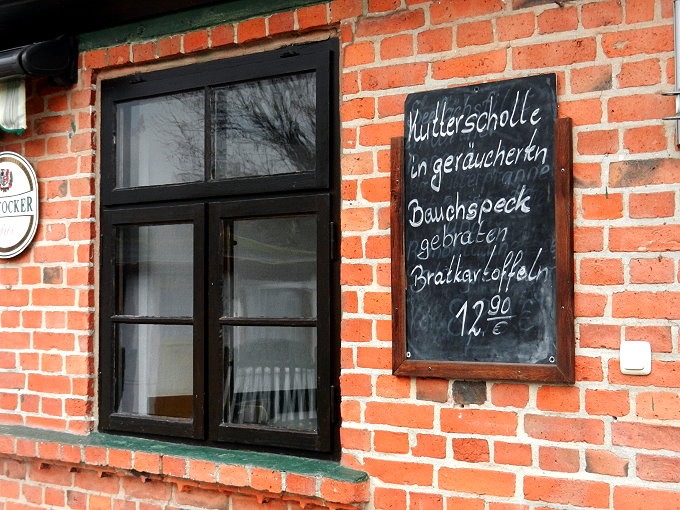 Kutterscholle
in geräucherten
Bauchspeck
gebraten
Bratkartoffeln
12.90 €
OCKER